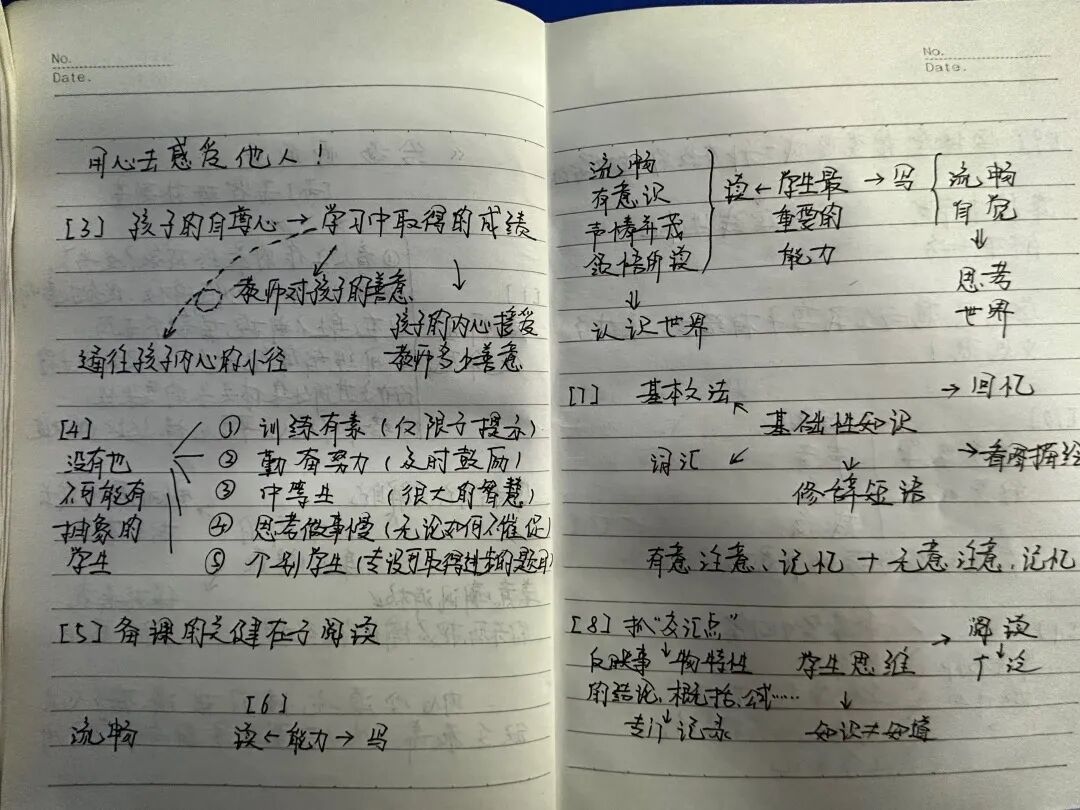 No.
Date.
用心去感受他人！
[3] 孩子的自尊心 → 学习中取得的成绩
教师对孩子的善意
孩子的内心接受
通往孩子内心的小径 教师多少善意
[4] ① 训练有素（仅限于提示）
没有也 ② 勤奋努力（及时鼓励）
不可能有 ③ 中等生 （很大的智慧）
抽象的 ④ 思考做事慢（无论如何不催促）
学生 ⑤ 个别学生（专设可取得进步的题目）
[5] 备课的关键在于阅读
[6]
流畅 读 ← 能力 → 写
No.
Date.
流畅
有意识 读 ← 学生最 → 写 流畅
声情并茂 重要的 自觉
领悟所读 能力 ⇓
⇓ 思考
认识世界 世界
[7] 基本文法 → 回忆
基础性知识
词汇 → 看图描绘
修辞短语
有意注意、记忆 + 无意注意、记忆
[8] 抓“交汇点” → 阅读
反映事 物特性 学生思维
的结论、概括、公式……
专门记录 知识≠知道